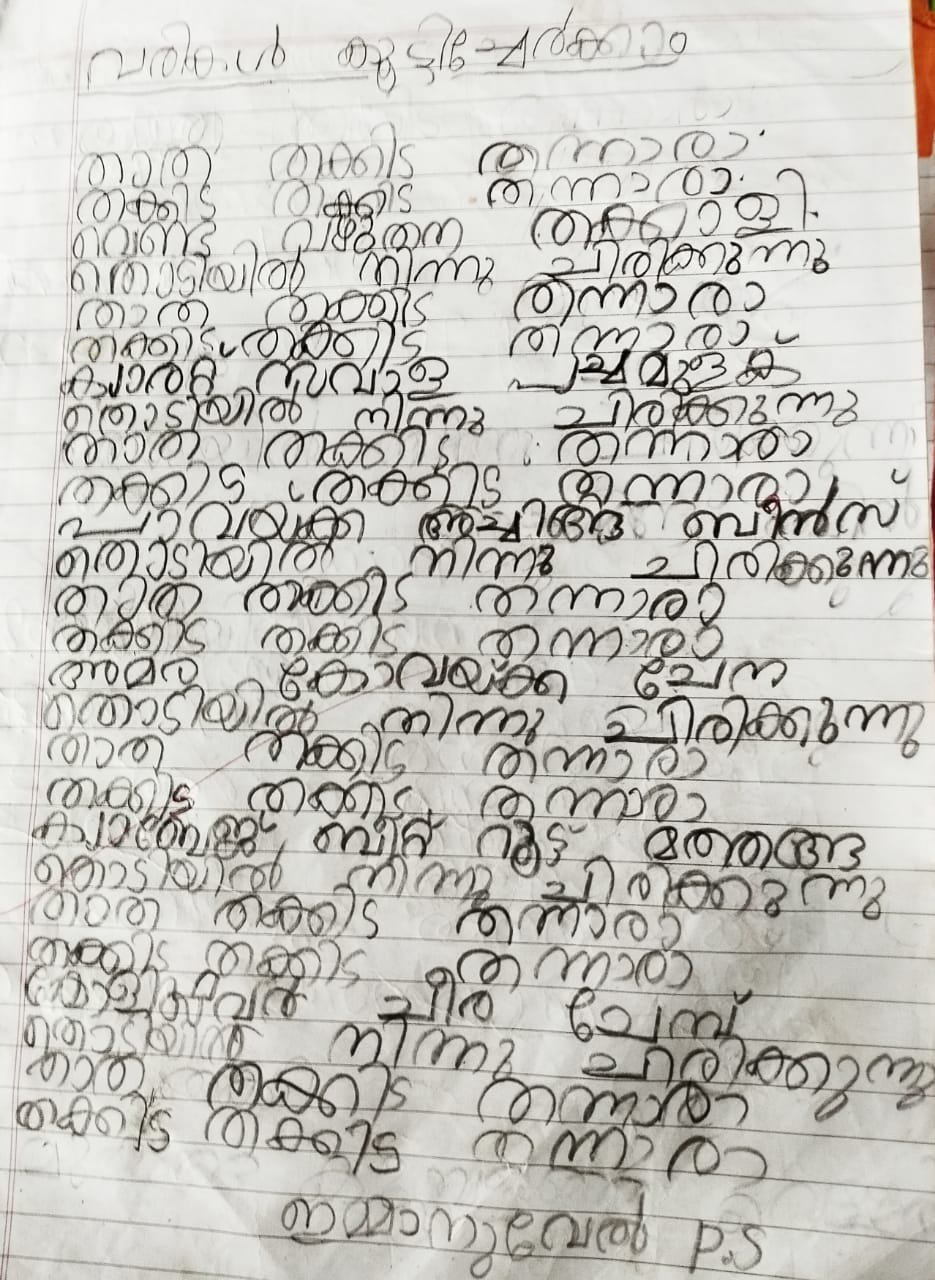 വരികൾ കൂട്ടിച്ചേർക്കാം
താത തക്കിട തന്നാരാ
തക്കിട തക്കിട തന്നാരാ
വെണ്ട വഴുതന തക്കാളി
തൊടിയിൽ നിന്നു ചിരിക്കുന്നു
താത തക്കിട തന്നാരാ
തക്കിട തക്കിട തന്നാരാ
ക്യാരറ്റ് സവാള പച്ചമുളക്
തൊടിയിൽ നിന്നു ചിരിക്കുന്നു
താത തക്കിട തന്നാരാ
തക്കിട തക്കിട തന്നാരാ
പാവയ്ക്ക അച്ചിങ്ങ ബീൻസ്
തൊടിയിൽ നിന്നു ചിരിക്കുന്നു
താത തക്കിട തന്നാരാ
തക്കിട തക്കിട തന്നാരാ
അമര കോവയ്ക്ക ചേന
തൊടിയിൽ നിന്നു ചിരിക്കുന്നു
താത തക്കിട തന്നാരാ
തക്കിട തക്കിട തന്നാരാ
ക്യാബേജ് ബീറ്റ് റൂട്ട് മത്തങ്ങ
തൊടിയിൽ നിന്നു ചിരിക്കുന്നു
താത തക്കിട തന്നാരാ
തക്കിട തക്കിട തന്നാരാ
കോളിഫ്ലവർ ചീര ചേമ്പ്
തൊടിയിൽ നിന്നു ചിരിക്കുന്നു
താത തക്കിട തന്നാരാ
തക്കിട തക്കിട തന്നാരാ
ഇമ്മാനുവേൽ P.S